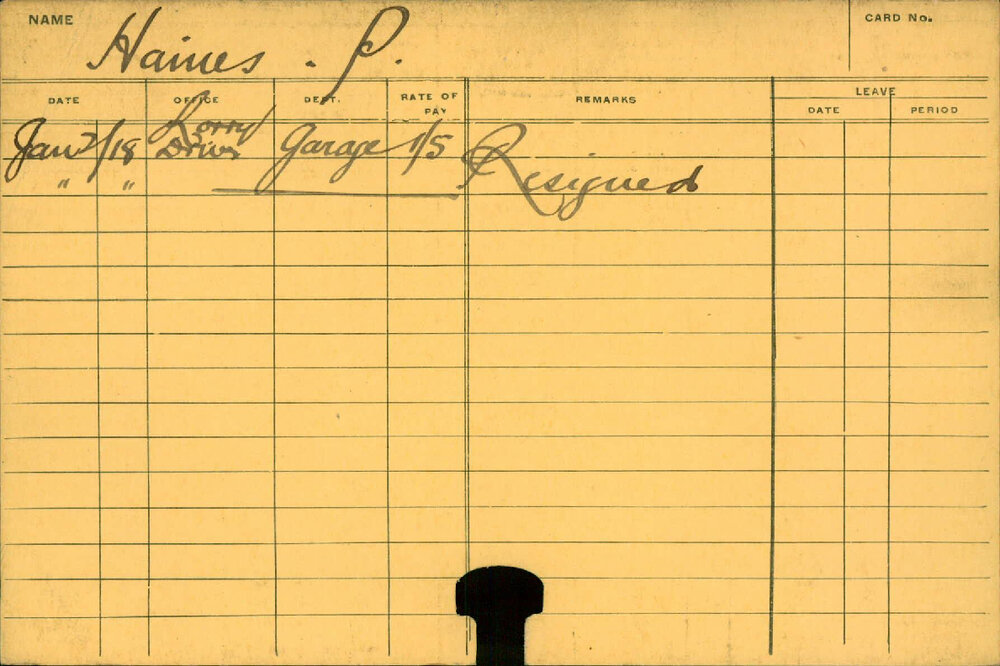 NAME Haines . P. CARD No.
DATE OFFICE DEPT. RATE OF PAY REMARKS LEAVE
DATE PERIOD
Jan 2/18 Lorry Driver Garage 1/5
" " Resigned